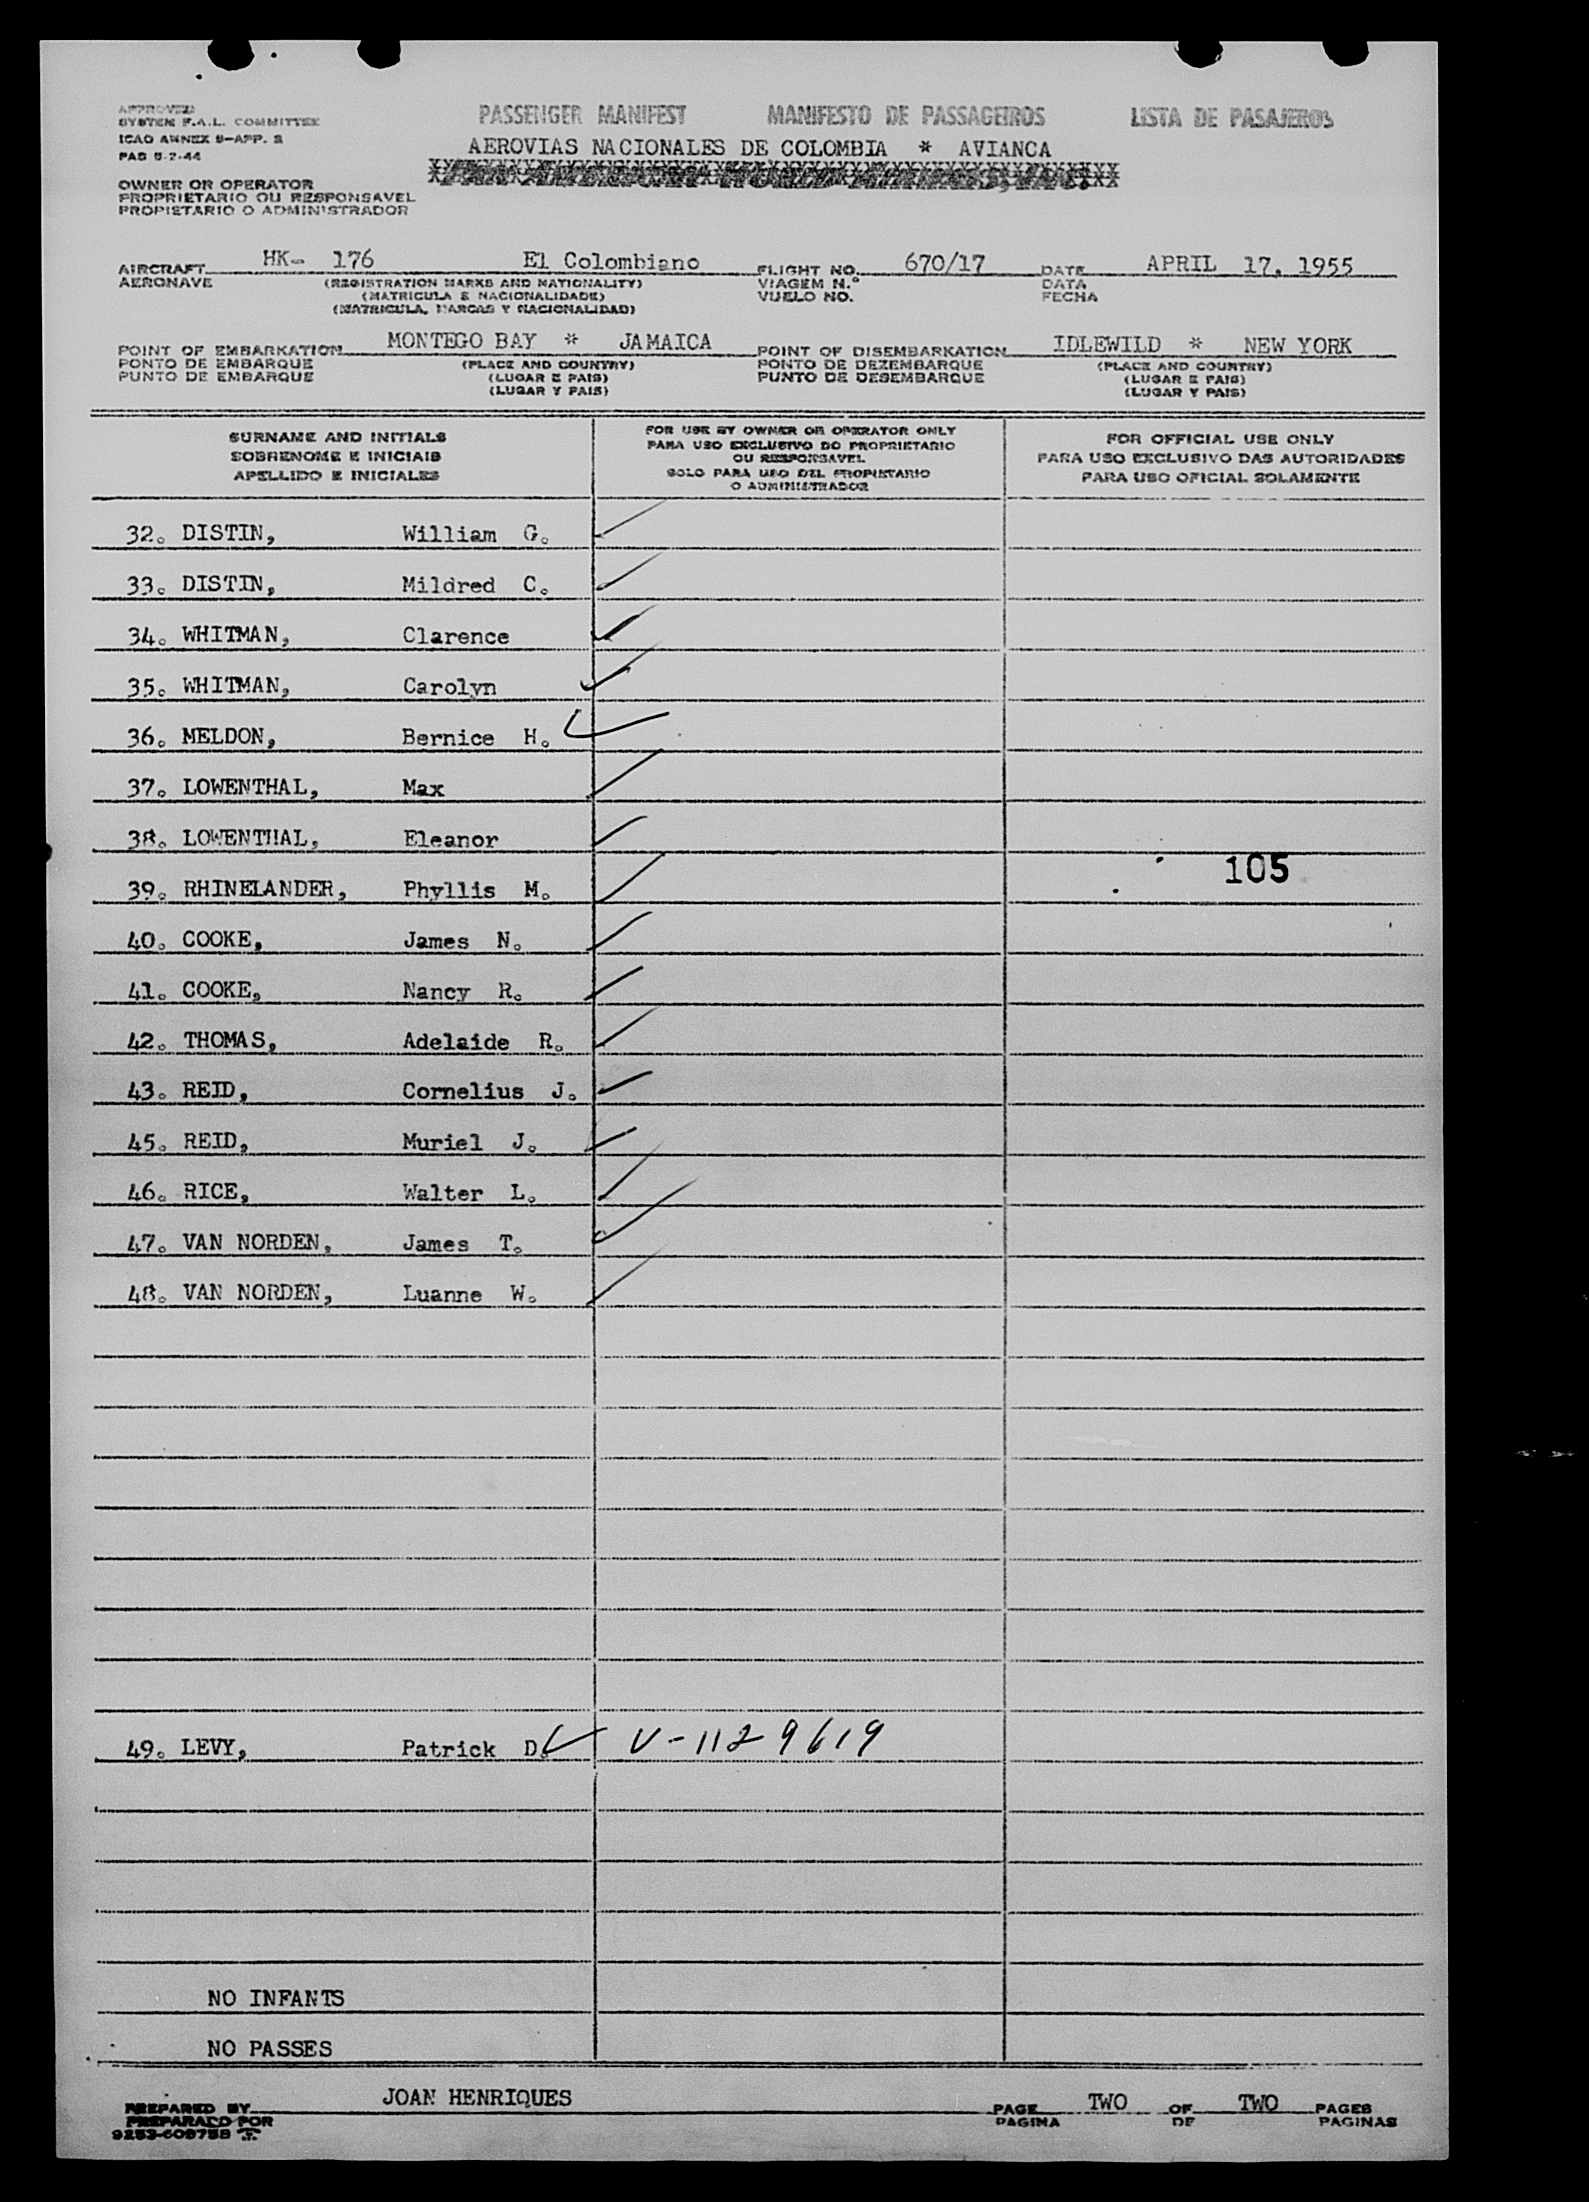 APPROVED
SYSTEM F.A.L. COMMITTEE
ICAO ANNEX 9-APP. 3
PAB 5-2-44
PASSENGER MANIFEST MANIFESTO DE PASSAGEIROS LISTA DE PASAJEROS
AEROVIAS NACIONALES DE COLOMBIA * AVIANCA
OWNER OR OPERATOR
PROPRIETARIO OU RESPONSAVEL
PROPIETARIO O ADMINISTRADOR
AIRCRAFT HK- 176 El Colombiano FLIGHT NO. 670/17 DATE APRIL 17, 1955
AERONAVE (REGISTRATION MARKS AND NATIONALITY) VIAGEM N.° DATA
(MATRICULA E NACIONALIDADE) VUELO NO. FECHA
(MATRICULA, MARCAS Y NACIONALIDAD)
POINT OF EMBARKATION MONTEGO BAY * JAMAICA POINT OF DISEMBARKATION IDLEWILD * NEW YORK
PONTO DE EMBARQUE (PLACE AND COUNTRY) PONTO DE DEZEMBARQUE (PLACE AND COUNTRY)
PUNTO DE EMBARQUE (LUGAR E PAIS) PUNTO DE DESEMBARQUE (LUGAR E PAIS)
(LUGAR Y PAIS) (LUGAR Y PAIS)
SURNAME AND INITIALS
SOBRENOME E INICIAIS
APELLIDO E INICIALES
FOR USE BY OWNER OR OPERATOR ONLY
PARA USO EXCLUSIVO DO PROPRIETARIO
OU RESPONSAVEL
SOLO PARA USO DEL PROPIETARIO
O ADMINISTRADOR
FOR OFFICIAL USE ONLY
PARA USO EXCLUSIVO DAS AUTORIDADES
PARA USO OFICIAL SOLAMENTE
32. DISTIN, William G.
33. DISTIN, Mildred C.
34. WHITMAN, Clarence
35. WHITMAN, Carolyn
36. MELDON, Bernice H.
37. LOWENTHAL, Max
38. LOWENTHAL, Eleanor
105
39. RHINELANDER, Phyllis M.
40. COOKE, James N.
41. COOKE, Nancy R.
42. THOMAS, Adelaide R.
43. REID, Cornelius J.
45. REID, Muriel J.
46. RICE, Walter L.
47. VAN NORDEN, James T.
48. VAN NORDEN, Luanne W.
49. LEVY, Patrick D. V-1129619
NO INFANTS
NO PASSES
PREPARED BY JOAN HENRIQUES PAGE TWO OF TWO PAGES
PREPARADO POR PAGINA DE PAGINAS